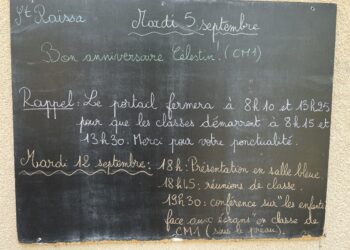 St Raissa
Mardi 5 septembre
Bon anniversaire Célestin! (CM1)
Rappel: Le portail fermera à 8h10 et 13h25
pour que les classes démarrent à 8h15 et
13h30. Merci pour votre ponctualité.
Mardi 12 septembre: 18h: Présentation en salle bleue
18h15: réunions de classe.
19h30: conférence sur "les enfants
face aux écrans" en classe de
CM1 (sous le préau).